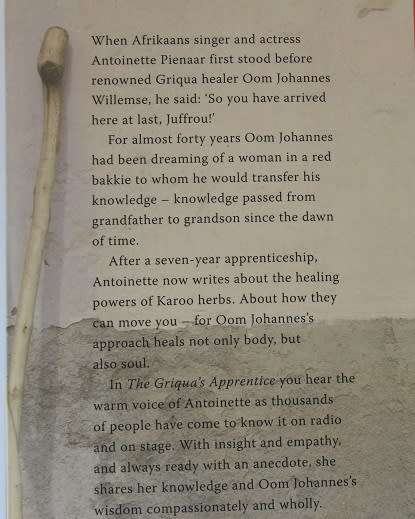 When Afrikaans singer and actress
Antoinette Pienaar first stood before
renowned Griqua healer Oom Johannes
Willemse, he said: ‘So you have arrived
here at last, Juffrou!’
For almost forty years Oom Johannes
had been dreaming of a woman in a red
bakkie to whom he would transfer his
knowledge – knowledge passed from
grandfather to grandson since the dawn
of time.
After a seven-year apprenticeship,
Antoinette now writes about the healing
powers of Karoo herbs. About how they
can move you – for Oom Johannes’s
approach heals not only body, but
also soul.
In The Griqua’s Apprentice you hear the
warm voice of Antoinette as thousands
of people have come to know it on radio
and on stage. With insight and empathy,
and always ready with an anecdote, she
shares her knowledge and Oom Johannes’s
wisdom compassionately and wholly.